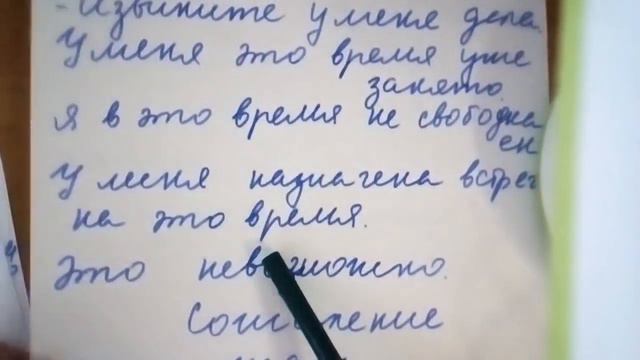 - Извините у меня дела.
У меня это время уже
занято.
Я в это время не свободна
ен
У меня назначена встреч
на это время.
Это невозможно.